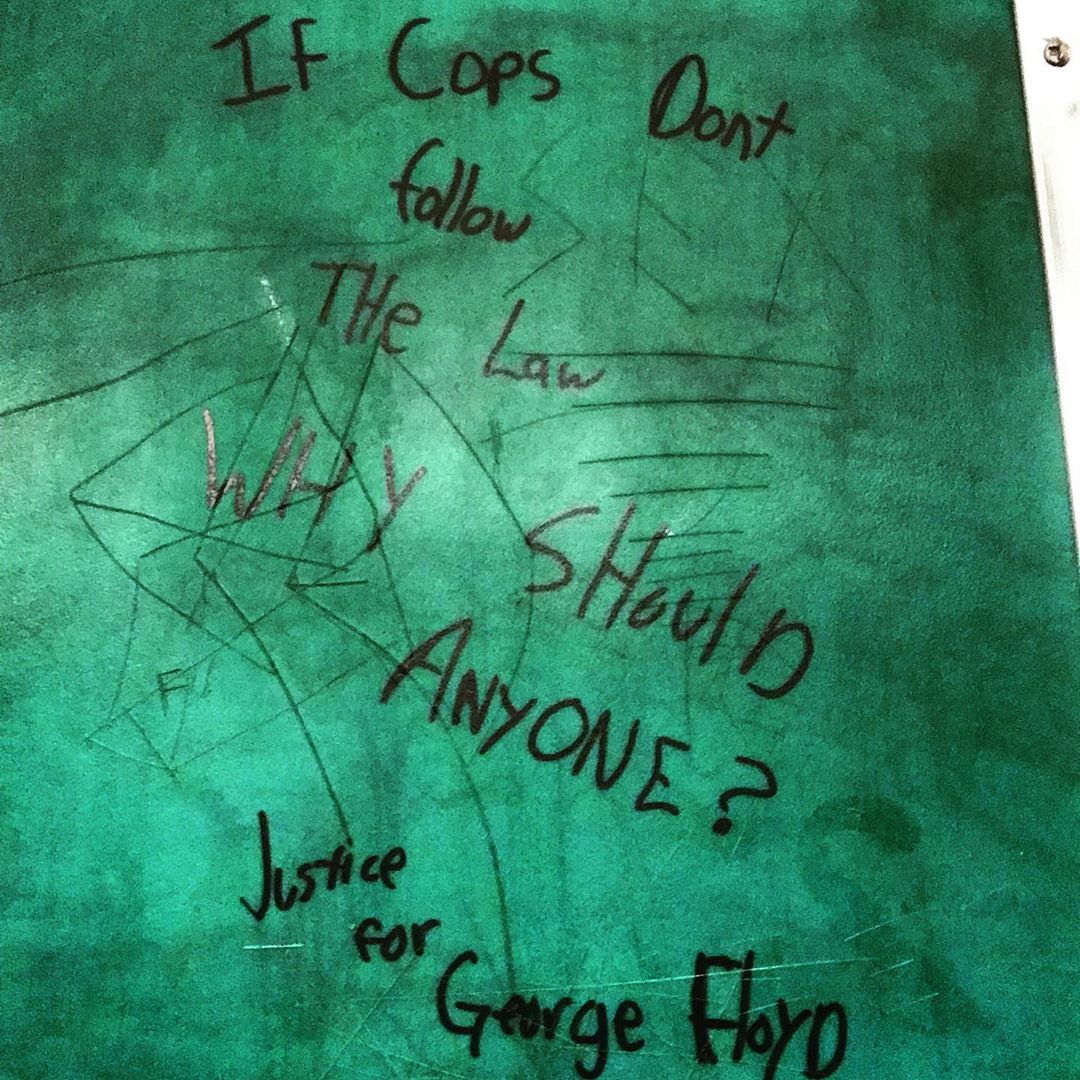 IF Cops Dont
follow
THe Law
WHY SHoulD
ANYONE?
Justice
for
George Floyd